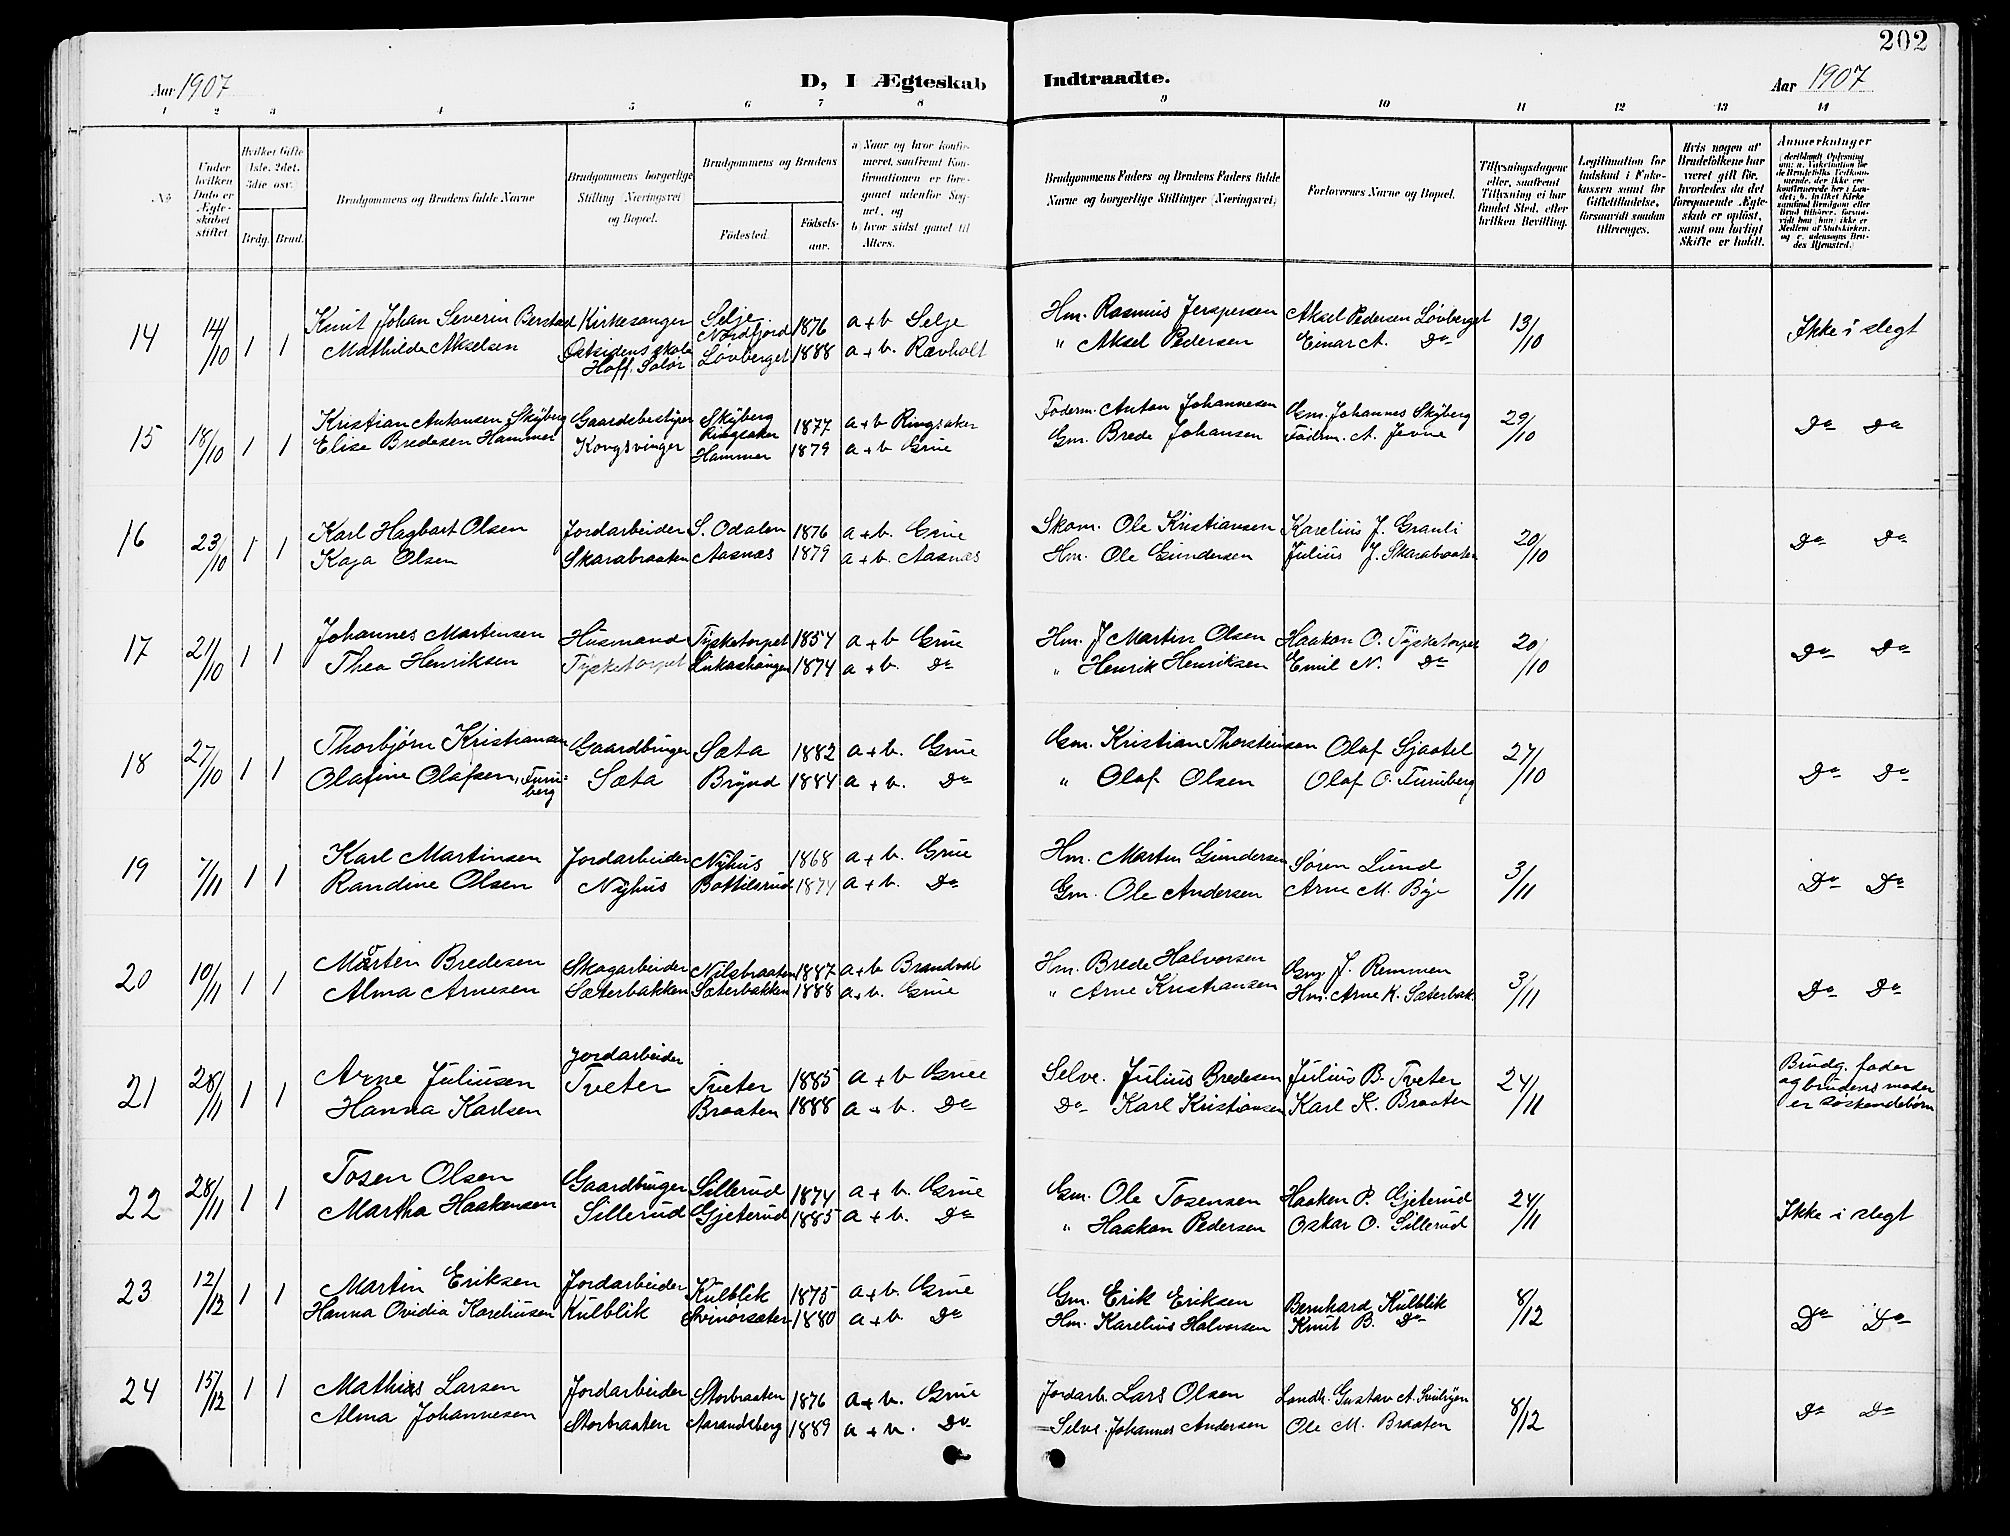 202
Aar 1907 D, I Ægteskab Indtraadte. Aar 1907
1 2 3 4 5 6 7 8 9 10 11 12 13 14
No
Under hvilken Dato er Ægteskabet stiftet
Hvilket Gifte 1ste, 2det, 3die osv.
Brdg. Brud.
Brudgommens og Brudens fulde Navne
Brudgommens borgerlige Stilling (Næringsvei) og Bopæl.
Brudgommens og Brudens
Fødested. Fødselsaar.
a) Naar og hvor konfirmeret, saafremt Konfirmationen er foregaaet udenfor Sognet, og
b) hvor sidst gaaet til Alters.
Brudgommens Faders og Brudens Faders fulde Navne og borgerlige Stillinger (Næringsvei)
Forlovernes Navne og Bopæl.
Tillysningsdagene eller, saafremt Tillysning ei har fundet Sted, efter hvilken Bevilling.
Legitimation for Indskud i Enkekassen samt for Giftetilladelse, forsaavidt saadan tiltrænges.
Hvis nogen af Brudefolkene har været gift før, hvorledes da det foregaaende Ægteskab er opløst, samt om lovligt Skifte er holdt.
Anmærkninger
(deriblandt Oplysning om: a. Vakcination for de Brudefolks Vedkommende, der ikke ere konfirmerede her i Landet; b. hvilket Kirkesamfund Brudgom eller Brud tilhører, forsaavidt han (hun) ikke er Medlem af Statskirken, og c. udensogns Brudes Hjemsted.)
14 14/10 1 1 Knut Johan Severin Berstad Kirkesanger Selje Nordfjord 1876 a+b Selje Hm. Rasmus Jerspersen Aksel Pedersen Løvberget 13/10 Ikke i slegt
Mathilde Akselsen Østsidens skole Hoff, Solør Løvberget 1888 a+b. Ravholt " Aksel Pedersen Einar A. Do
15 18/10 1 1 Kristian Antonsen Skyberg Gaardsbestyrer Skyberg Ringsaker 1877 a+b Ringsaker Føderm. Anton Johannesen Gm. Johannes Skyberg 29/10 Do Do
Elise Bredesen Hammer Kongsvinger Hammer 1879 a+b Grue Gm. Brede Johansen Føderm. A. Jevne
16 23/10 1 1 Karl Hagbart Olsen Jordarbeider S. Odalen 1876 a+b. Grue Skom. Ole Kristiansen Karelius J. Granli 20/10 Do Do
Kaja Olsen Skarabraaten Aasnæs 1879 a+b. Aasnæs Hm. Ole Gundersen Julius J. Skarabraaten
17 21/10 1 1 Johannes Martensen Husmand Tysketorpet 1854 a+b Grue Hm. J Martin Olsen Haakon O. Tysketorpet 20/10 Do Do
Thea Henriksen Tysketorpet Lukashaugen 1874 a+b. Do " Henrik Henriksen Emil N. Do
18 27/10 1 1 Thorbjørn Kristiansen Gaardbruger Sæta 1882 a+b. Grue Gm. Kristian Thorsteinson Olaf Sjaatel 27/10 Do Do
Olafine Olafsen, Furuberg Sæta Brynd 1884 a+b. Do " Olaf Olsen Olaf O. Furuberg
19 7/11 1 1 Karl Martinsen Jordarbeider Nyhus 1868 a+b. Grue Hm. Martin Gundersen Søren Lund 3/11 Do Do
Randine Olsen Nyhus Bottilsrud 1874 a+b. Do Gm. Ole Andersen Arne M. Bye
20 10/11 1 1 Mårten Bredesen Skogarbeider Nilsbraaten 1887 a+b Brandval Hm. Brede Halvorsen Gm. J. Remmen 3/11 Do Do
Alma Arnesen Sæterbakken Sæterbakken 1888 a+b. Grue " Arne Kristiansen Hm. Arne K. Sæterbak.
21 28/11 1 1 Arne Juliusen Jordarbeider Tveter Tveter 1885 a+b Grue Selve. Julius Bredesen Julius B. Tveter 24/11 Brudg. fader og brudens moder er søskendebørn
Hanna Karlsen Braaten 1888 a+b. Do Do Karl Kristiansen Karl K. Braaten
22 28/11 1 1 Tosen Olsen Gaardbruger Sillerud 1874 a+b. Grue Gm. Ole Tosensen Haaken P. Gjeterud 24/11 Ikke i slegt
Martha Haakensen Sillerud Gjeterud 1885 a+b. Do " Haakon Pedersen Oskar O. Sillerud
23 12/12 1 1 Martin Eriksen Jordarbeider Kulblik 1875 a+b. Grue Gm. Erik Eriksen Bernhard Kulblik 8/12 Do Do
Hanna Ovidia Kareliusen Kulblik 1880 a+b Do Hm. Karelius Halvorsen Knut B. Do
24 15/12 1 1 Mathias Larsen Jordarbeider Storbraaten 1876 a+b. Grue Jordarb. Lars Olsen Landh. Gustav A. 8/12 Do Do
Alma Johannesen Storbraaten Aarandsberg 1889 a+b. Do Selve. Johannes Andersen Ole M. Braaten